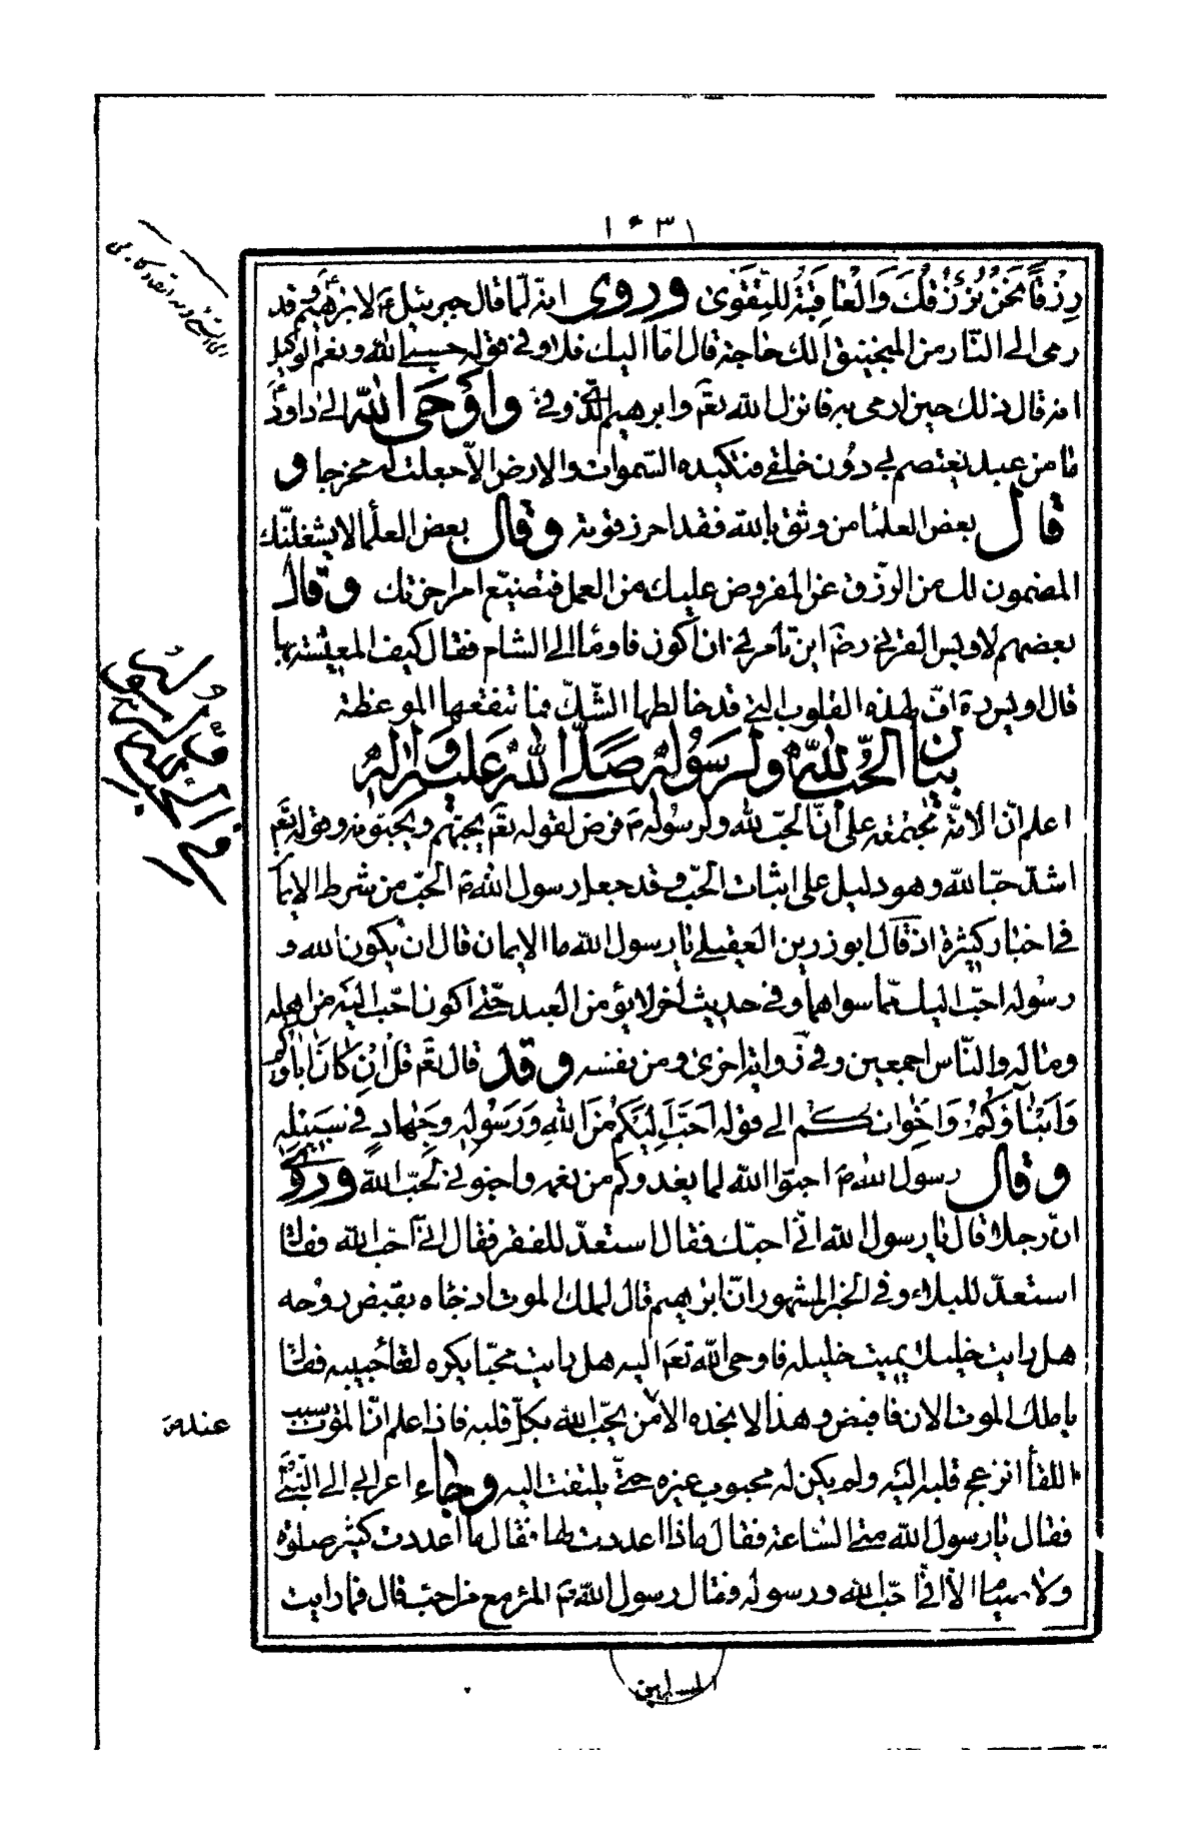 ١٠٣١
رِزْقاً نَحْنُ نَرْزُقُكَ وَالْعاقِبَةُ لِلتَّقْوى وروى انه لما قال جبرئيل ع لابرهيم وقد
رمى الى النار من المنجنيق الك حاجة قال اما اليك فلا وفى بقوله حسبى الله ونعم الوكيل
اذ قال ذلك حين ارمى به فانزل الله تعم وابرهيم الذى وفى واوحى الله الى داود
ما من عبد يعتصم بى دون خلقى فتكيده السموات والارض الا جعلت له مخرجا و
قال بعض العلما من وثق بالله فقد احرز قوته وقال بعض العلما لا يشغلنك
المضمون لك من الرزق عن المفروض عليك من العمل فتضيع امر اخرتك وقال
بعضهم لاويس القرنى رضه اين تامرنى ان اكون فاوما الى الشام فقال كيف المعيشة بها
قال اويس اف لهذه القلوب التى قد خالطها الشك فما تنفعها الموعظة
بيان الحب لله ولرسوله صلى الله عليه واله
اعلم ان الامة مجتمعة على ان الحب لله ولرسوله ص فرض لقوله تعم يحبهم ويحبونه وقوله تعم
اشد حبا لله وهو دليل على اثبات الحب وقد جعل رسول الله ص الحب من شرط الايما
فى اخبار كثيرة اذ قال ابو زرين العقيلى يا رسول الله ما الايمان قال ان يكون الله و
رسوله احب اليك مما سواهما وفى حديث اخر لا يؤمن العبد حتى اكون احب اليه من اهله
وماله والناس اجمعين وفى رواية اخرى ومن نفسه وقد قال تعم قل ان كان اباؤكم
وَاَبْناؤُكُمْ وَاِخْوانكم الى قوله اَحَبَّ اِلَيْكُمْ مِنَ اللهِ وَرَسُولِهِ وَجِهادٍ فى سَبيلِهِ
وقال رسول الله ص احبوا الله لما يغدوكم من نعمه واحبونى لحب الله وروى
ان رجلا قال يا رسول الله انى احبك فقال استعد للفقر فقال انى احب الله فقال
استعد للبلاء وفى الخبر المشهور ان ابرهيم قال لملك الموت اذ جاه بقبض روحه
هل رايت خليلا يميت خليله فاوحى الله تعم اليه هل رايت محبا يكره لقا حبيبه فقال
يا ملك الموت الان فاقبض وهذا لا يجده الا من يحب الله بكل قلبه فاذا علم ان الموت سبب
اللقأ انزعج قلبه اليه ولم يكن له محبوب غيره حتى يلتفت اليه وجاء اعرابى الى النبى
فقال يا رسول الله متى الساعة فقال ماذا اعددت لها فقال ما اعددت كثير صلوة
ولا صياما الا انى احب الله ورسوله فقال رسول الله ص المرء مع من احب قال فما رايت
المسلمين
عنده